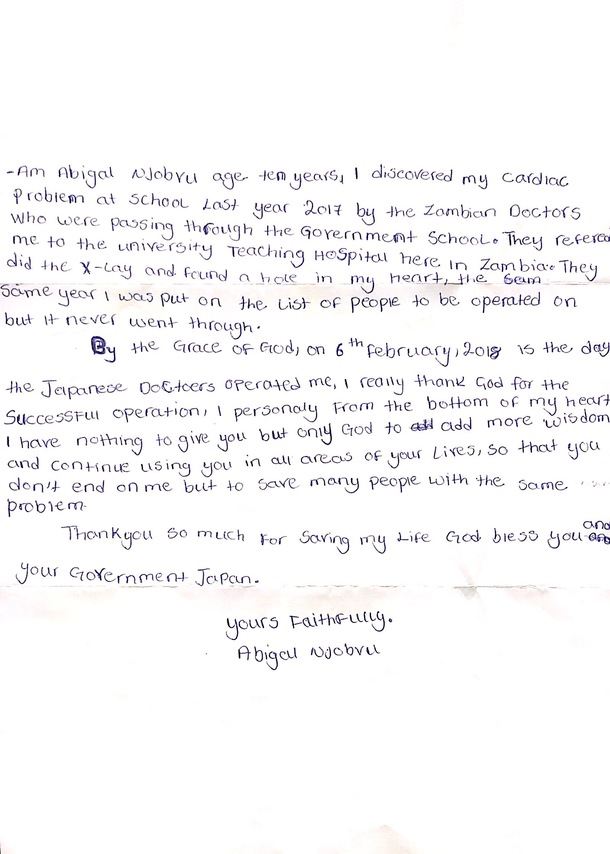 -Am Abigal Njobvu age ten years, I discovered my cardiac
problem at school Last year 2017 by the Zambian Doctors
who were passing through the Government School. They refered
me to the university Teaching Hospital here in Zambia. They
did the X-Lay and found a hole in my heart, the Sem
Same year I was put on the List of people to be operated on
but it never went through.
By the Grace of God, on 6th February, 2018 is the day
the Japanese Doctoers operated me, I really thank God for the
Successful operation, I personaly from the bottom of my heart
I have nothing to give you but only God to add more wisdom
and continue using you in all areas of your Lives, so that you
don't end on me but to save many people with the same
problem.
Thankyou so much for Saving my Life God bless you and
your Government Japan.
yours Faithfully.
Abigal Njobvu